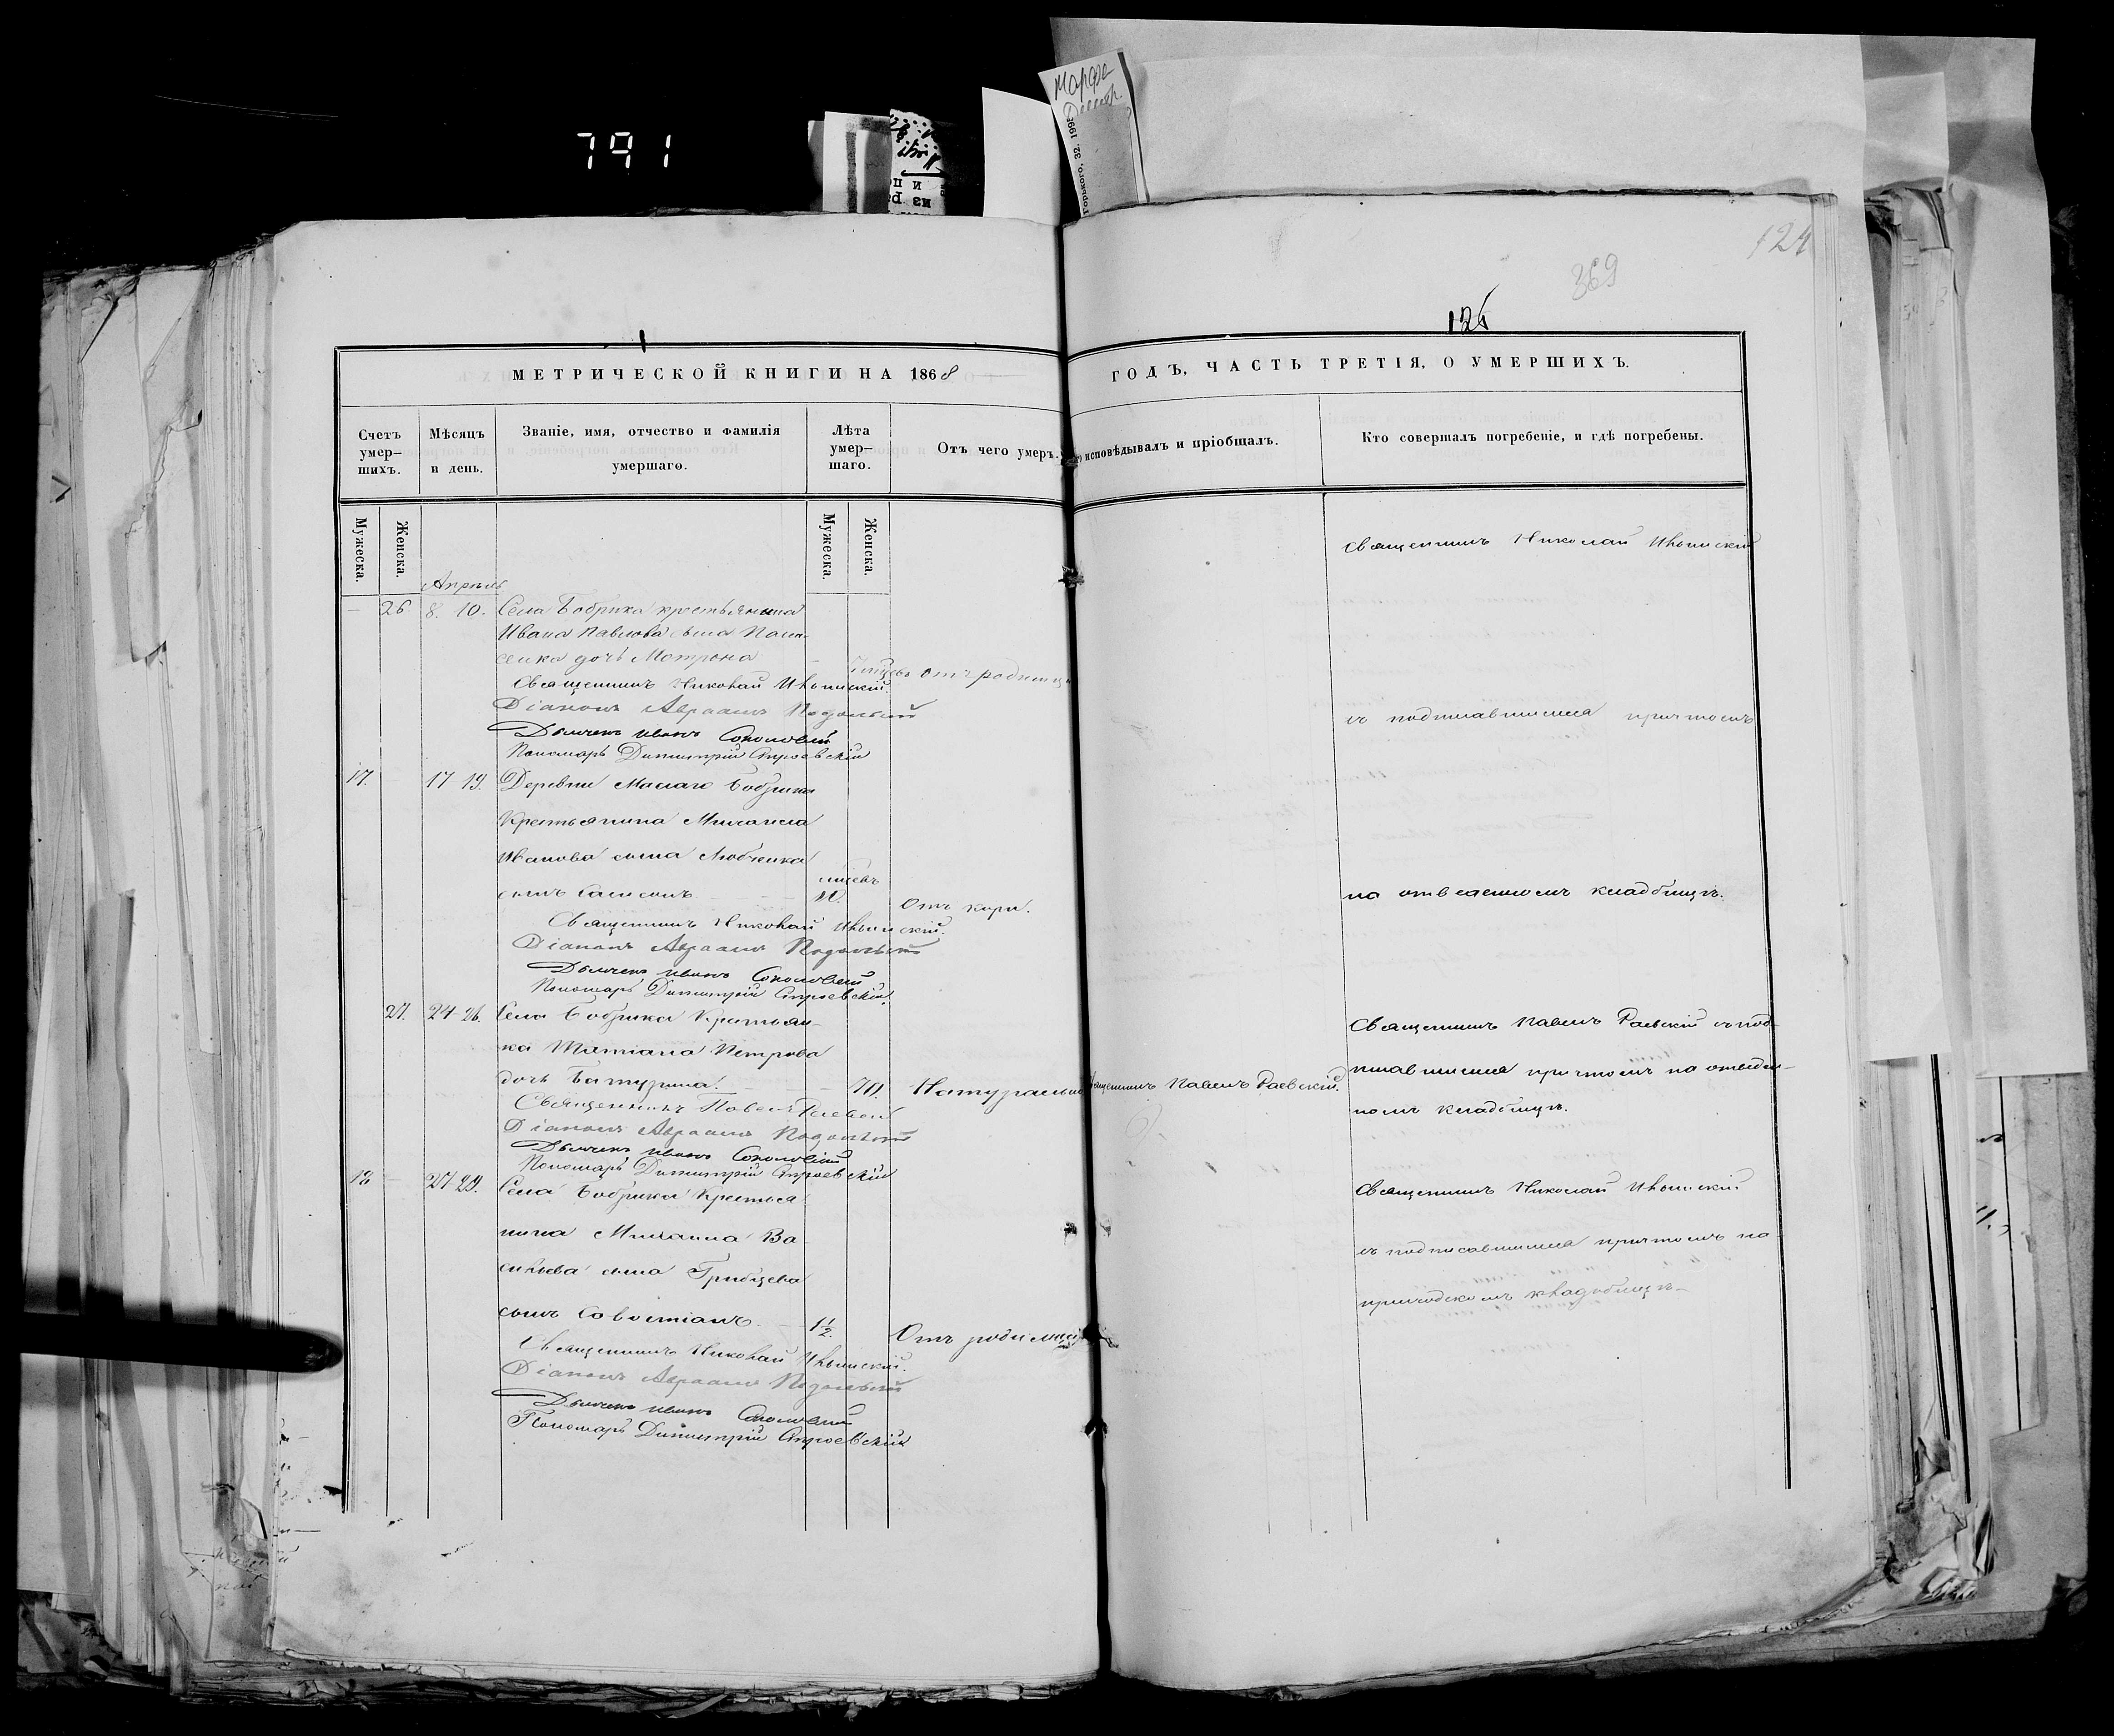 791
Марфа
Горького, 32. 199
124
369
126
МЕТРИЧЕСКОЙ КНИГИ НА 1868 ГОДЪ, ЧАСТЬ ТРЕТІЯ, О УМЕРШИХЪ.
Счетъ умер-шихъ.
Мѣсяцъ и день.
Званіе, имя, отчество и фамилія умершаго.
Лѣта умер-шаго.
Отъ чего умеръ.
исповѣдывалъ и пріобщалъ.
Кто совершалъ погребеніе, и гдѣ погребены.
Мужеска.
Женска.
Мужеска.
Женска.
Апрѣль
Священникъ Николай Ильинскій
26 8. 10. Села Бобрика крестьянина
Ивана Павлова сына
дочь Матрона
отъ родимца
Священникъ Николай Ильинскій.
Діаконъ Авраамъ Подольскій
съ подписавшимся причтомъ
Дьячекъ Иванъ Соколовскій
Пономарь Димитрій
17. 17 19. Деревни Малаго Бобрика
Крестьянина Михаила
Иванова сына Любченка
сынъ Самсонъ
Отъ кори.
на отведенномъ кладбищѣ.
Священникъ Николай Ильинскій.
Діаконъ Авраамъ Подольскій
Дьячекъ Иванъ Соколовскій
Пономарь Димитрій
27. 24-26. Села Бобрика Крестьян-
Священникъ Павелъ Раевскій съ под-
ка Татіана Петрова
писавшимся причтомъ на отведен-
дочь Батурина. 70. Натурально Священникъ Павелъ Раевскій.
номъ кладбищѣ.
Священникъ Павелъ Раевскій
Діаконъ Авраамъ Подольскій
Дьячекъ Иванъ Соколовскій
Пономарь Димитрій
18 27-29. Села Бобрика Крестья-
Священникъ Николай Ильинскій
нина Михаила Ва-
съ подписавшимся причтомъ на
сильева сына Грибцева
приходскомъ кладбищѣ
сынъ Савостіанъ 1½. Отъ родимца
Священникъ Николай Ильинскій.
Діаконъ Авраамъ Подольскій
Дьячекъ Иванъ Соколовскій
Пономарь Димитрій